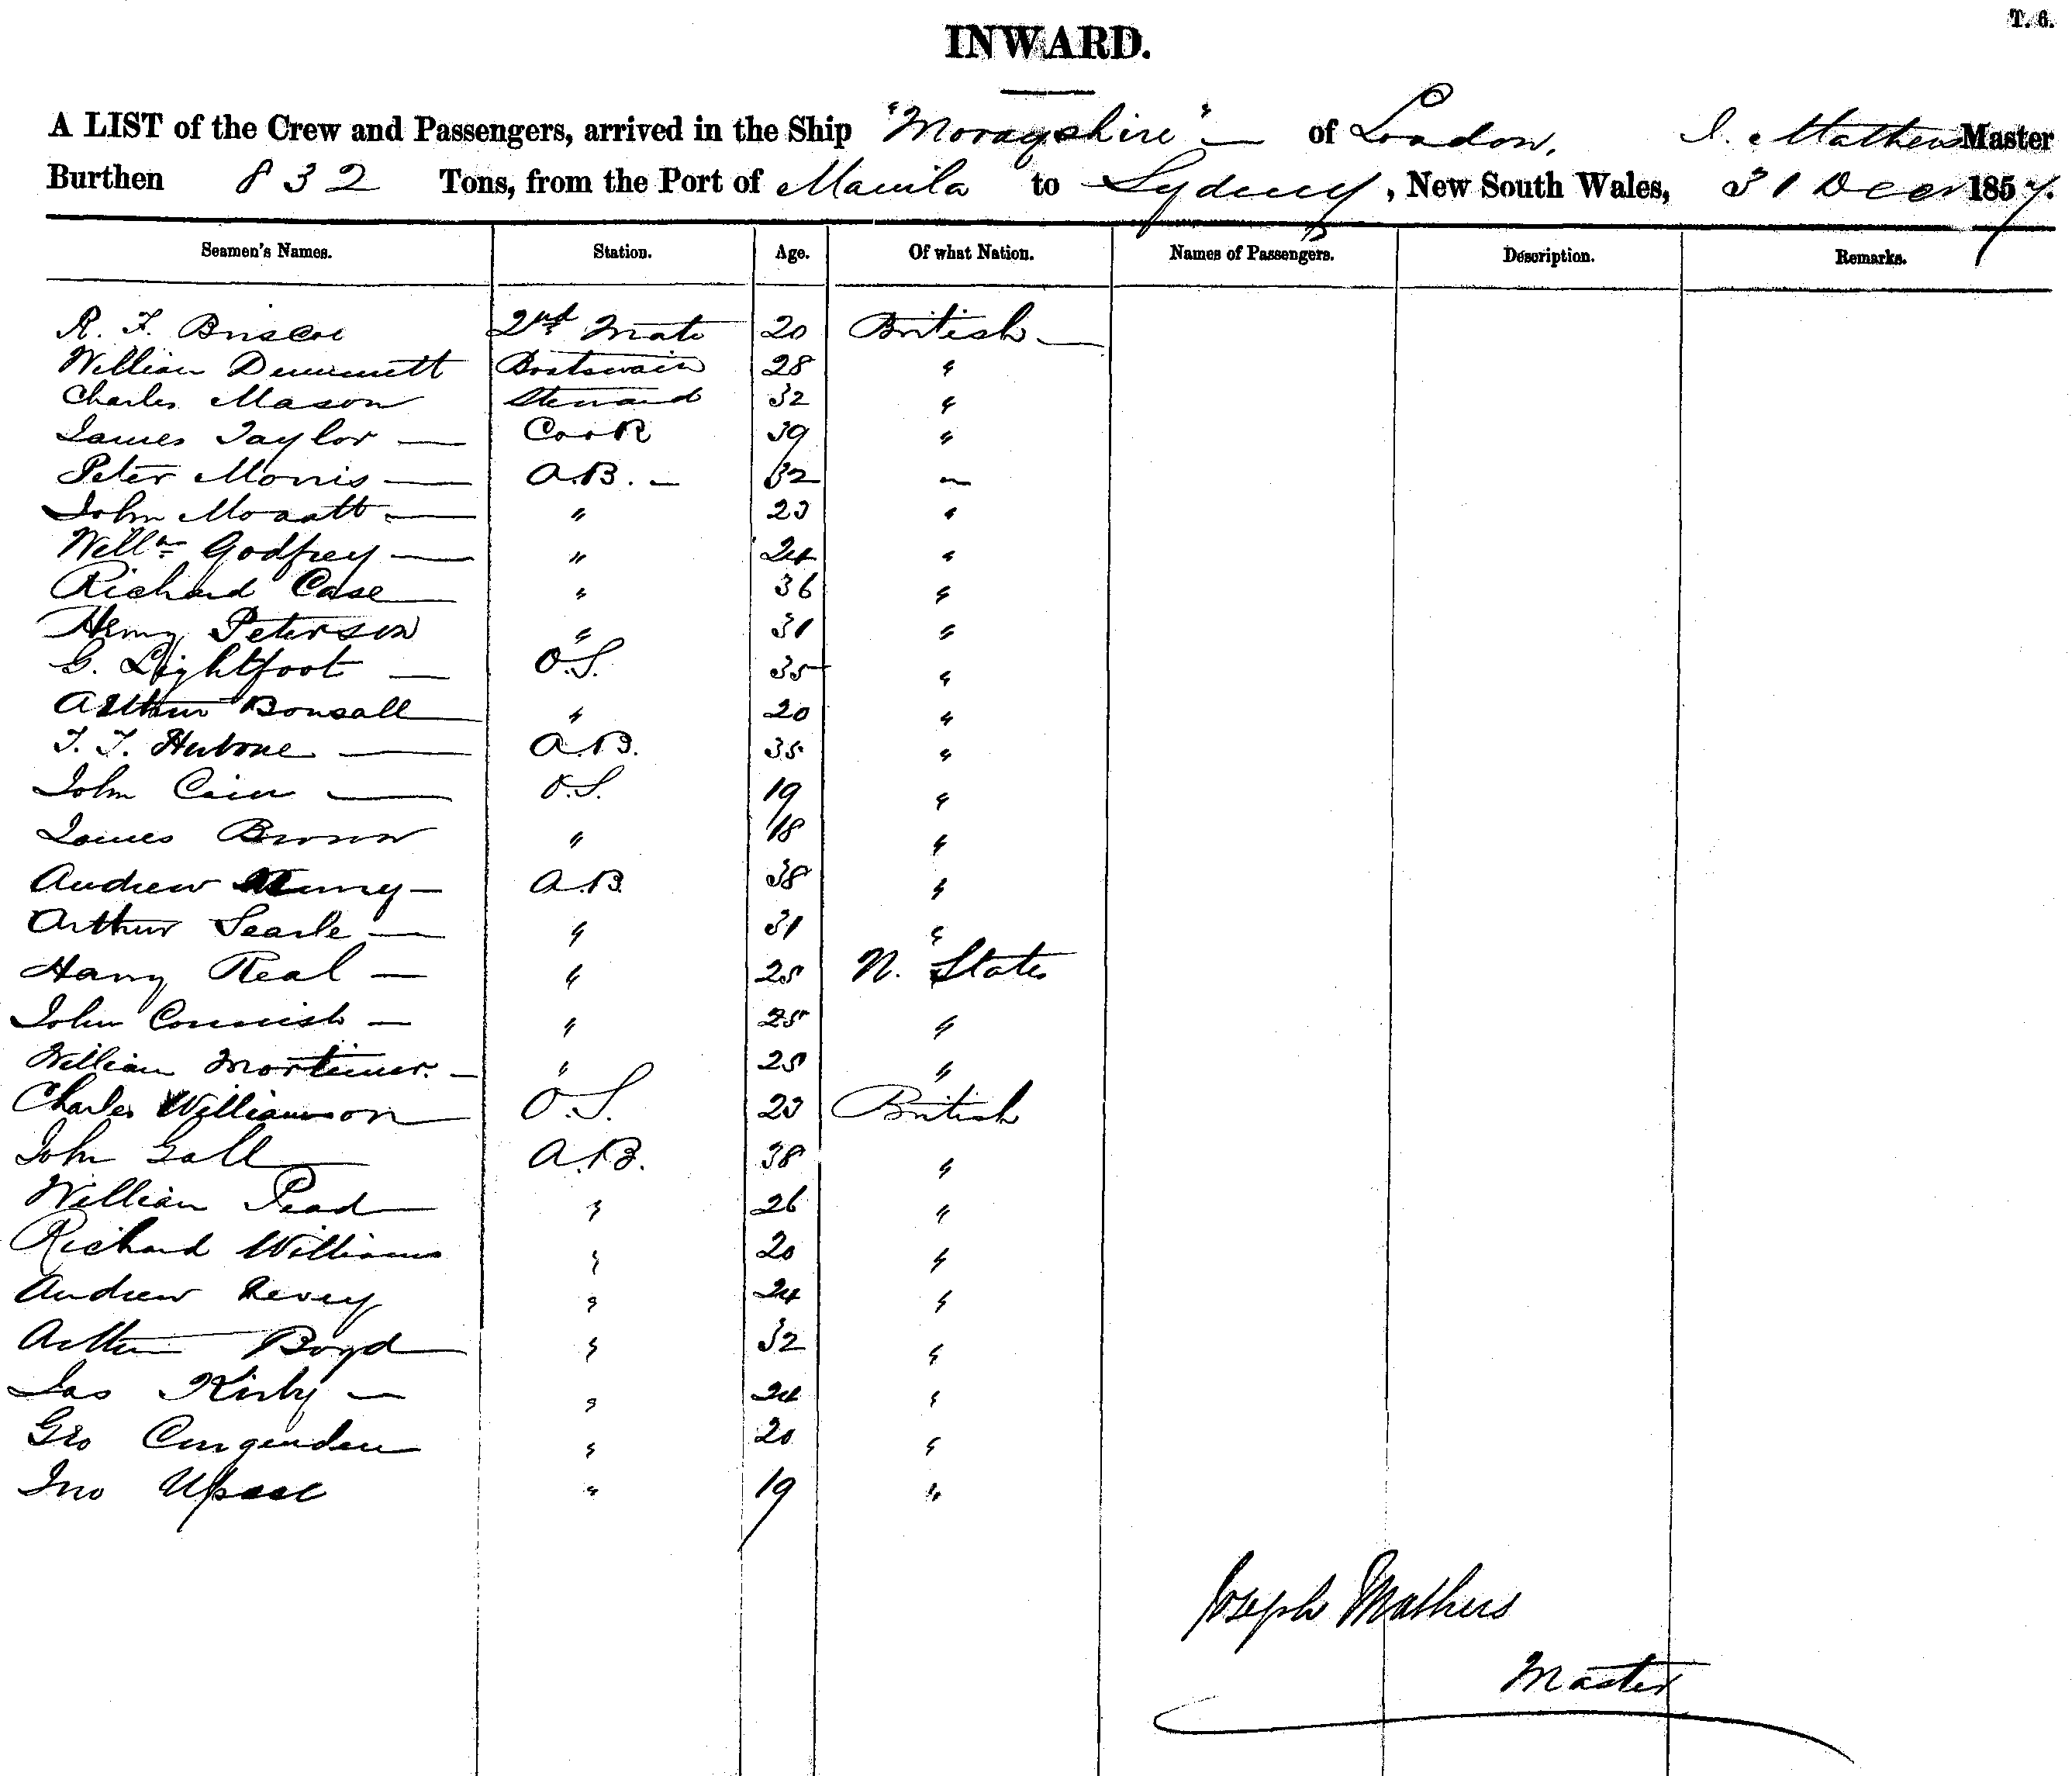 T. 6.
INWARD.
A LIST of the Crew and Passengers, arrived in the Ship "Morayshire" of London, J. Mathers Master
Burthen 832 Tons, from the Port of Manila to Sydney, New South Wales, 31 Decr 1857.
Seamen's Names. Station. Age. Of what Nation. Names of Passengers. Description. Remarks.
R. F. Briscoe 2nd Mate 20 British
William 28 "
Charles Mason Steward 32 "
James Taylor Cook 39 "
Peter Morris A.B. 32 "
John " 23 "
Willm Godfrey " 24 "
Richard Case " 36 "
Henry Peterson " 31 "
G. Lightfoot O.S. 35 "
Arthur Bonsall " 20 "
A.B. 35 "
John Cain O.S. 19 "
James Brown " 18 "
Andrew A.B. 38 "
Arthur Searle " 31 "
Harry Real " 25 N. States
John Cornish " 25 "
William Mortimer " 25 "
Charles Williamson O.S. 23 British
John Gall A.B. 38 "
William Pead " 26 "
Richard Williams " 20 "
Andrew " 24 "
Arthur Boyd " 32 "
Jas Kirby " 24 "
Geo " 20 "
Jno " 19 "
Joseph Mathers
Master